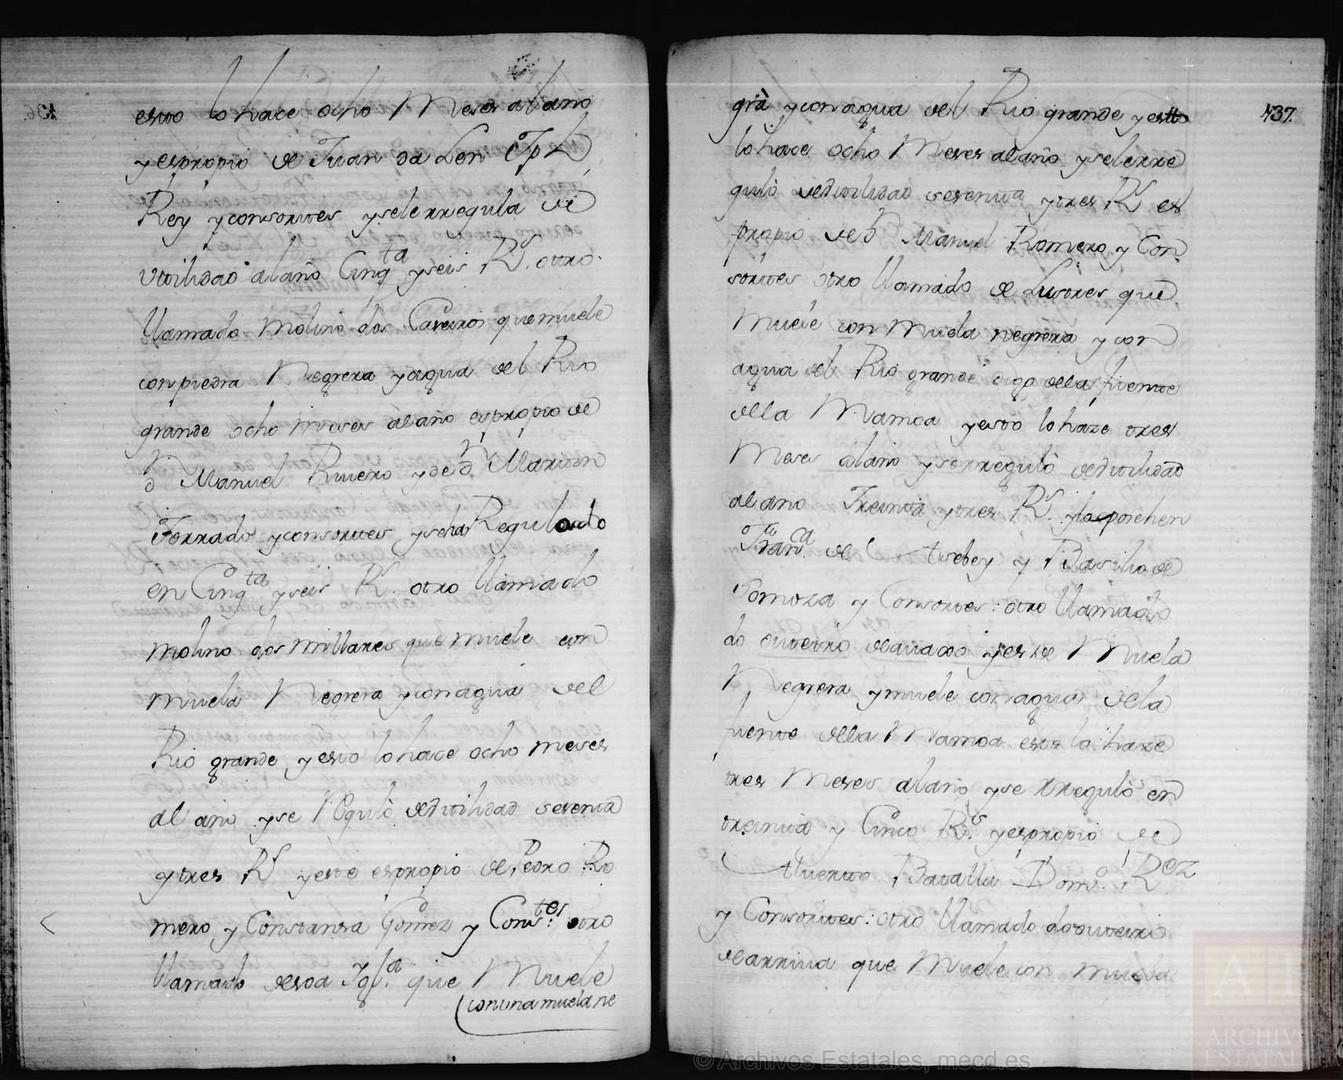 436
esto lo hace ocho Meses al año
y es propio de Juan da
Rey y consortes y se le rregula de
Utilidad al año Cinqta y seis Rs. otro
llamado Molino dos Caveiros que muele
con piedra Negrera y agua del Rio
grande ocho meses al año es propio de
Dn Manuel Rivero y de Dn Martin
Forrado y consortes y se ha Regulado
en Cinqta y seis Rs. otro llamado
molino dos millares que muele con
muela Negrera y con agua del
Rio grande y esto lo hace ocho meses
al año y se Reguló de utilidad setenta
y tres Rs y este es propio de Pedro Ro
mero y Constanza Gomez y Constes: otro
llamado desta Iglª que Muele
con una muela ne
437.
gra y con agua del Rio grande y esto
lo hace ocho Meses al año y se le rre
guló de utilidad setenta y tres Rs es
propio de Dn Manuel Romero y Con
sortes otro llamado de que
Muele con muela negrera y con
agua del Rio grande digo de la fuente
de la Mamoa y esto lo haze tres
Meses al año y se rreguló de utilidad
al año Treinta y tres Rs. y la posehen
Franca de y Basilio de
Somoza y Consortes: otro llamado
do outeiro de avajo y es de Muela
Negrera y muele con agua de la
fuente de la Mamoa esto lo haze
tres Meses al año y se rreguló en
treinta y Cinco Rs. y es propio de
Alverto Domo. Rez
y Consortes: otro llamado do outeiro
de arriva que Muele con muela
© Archivos Estatales, mecd.es
ARCHIVOS
ESTATALES